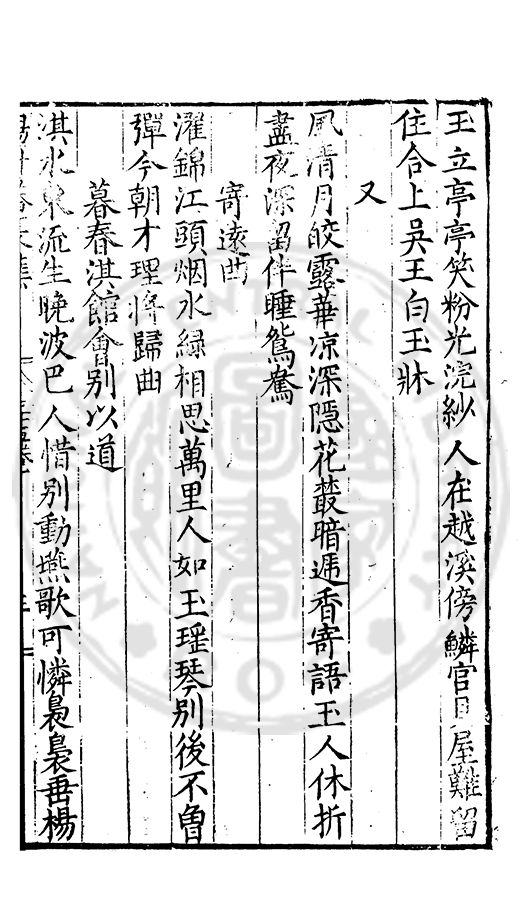 玉立亭亭笑粉光浣紗人在越溪傍鱗宮貝屋難留
住合上吳王白玉牀
又
風清月皎露華凉深隱花叢暗遞香寄語玉人休折
盡夜深留伴睡鴛鴦
寄遠曲
濯錦江頭烟水綠相思萬里人如玉瑶琴別後不曾
彈今朝才理將歸曲
暮春淇館會別以道
淇水泉流生晚波巴人惜別動燕歌可憐裊裊垂楊